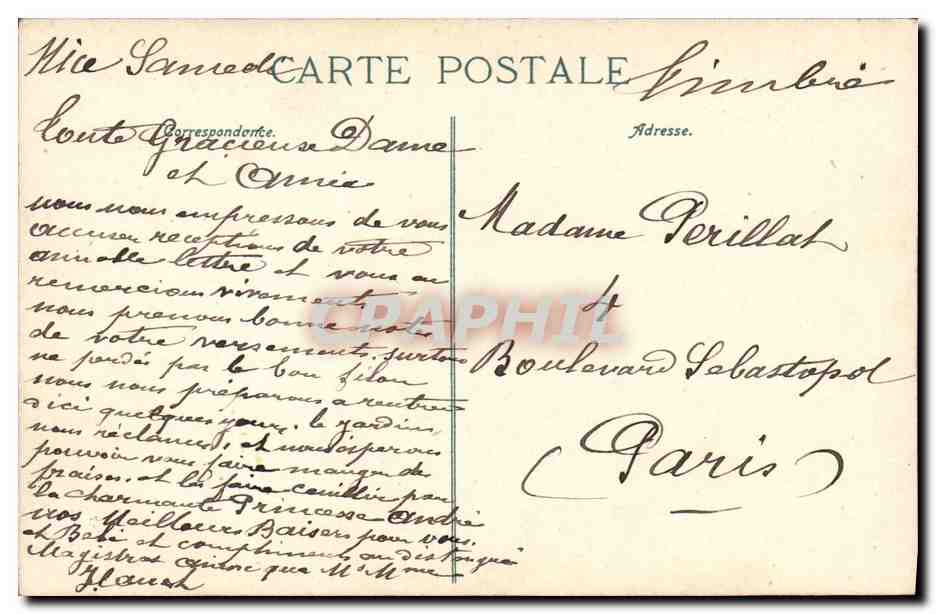 CARTE POSTALE
Nice Samedi
Timbré
Correspondance.
Adresse.
Toute Gracieuse Dame
et Amie
nous nous empressons de vous
accuser réceptions de votre
aimable lettre et vous en
remercions vivements
nous prenons bonne notes
de votre versements. surtout
ne perdés pas le bon filon
nous nous préparons a rentrer
d'ici quelques jours. le jardin,
nous réclames, et nous ésperons
pouvoir vous faire manger des
fraises. et les faire cueillir par
la charmante Princesse André
nos Meilleurs Baisers pour vous.
et Bebé et compliments au distingué
Magistrat ainsi que Mr Mme
Madame Perillat
4
Boulevard Sebastopol
(Paris)
CPAPHIL